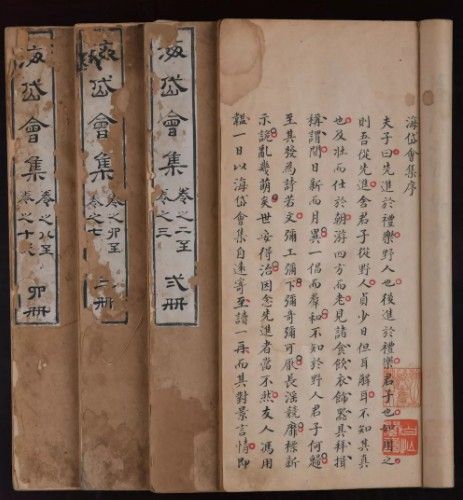 海岱會集序
夫子曰先進於禮樂野人也後進於禮樂君子也如用之
則吾從先進舍君子從野人貞少日但耳解耳不知其真
也及壯而仕於朝游四方而老見諸食飲衣飾器具拜揖
稱謂間日新而月異一倡而羣和不知於野人君子何趨
至其發為詩若文彌工彌下彌奇彌可厭長淫競靡標新
示詭亂幾萌矣世安得治因念先進者當不然友人馮用
韞一日以海岱會集自遠寄至讀一再而其對景言情即
海岱會集
卷之二至
卷之三
弍冊
海岱會集
卷之卯至
卷之七
冊
海岱會集
卷之九至
卷之十
卯冊